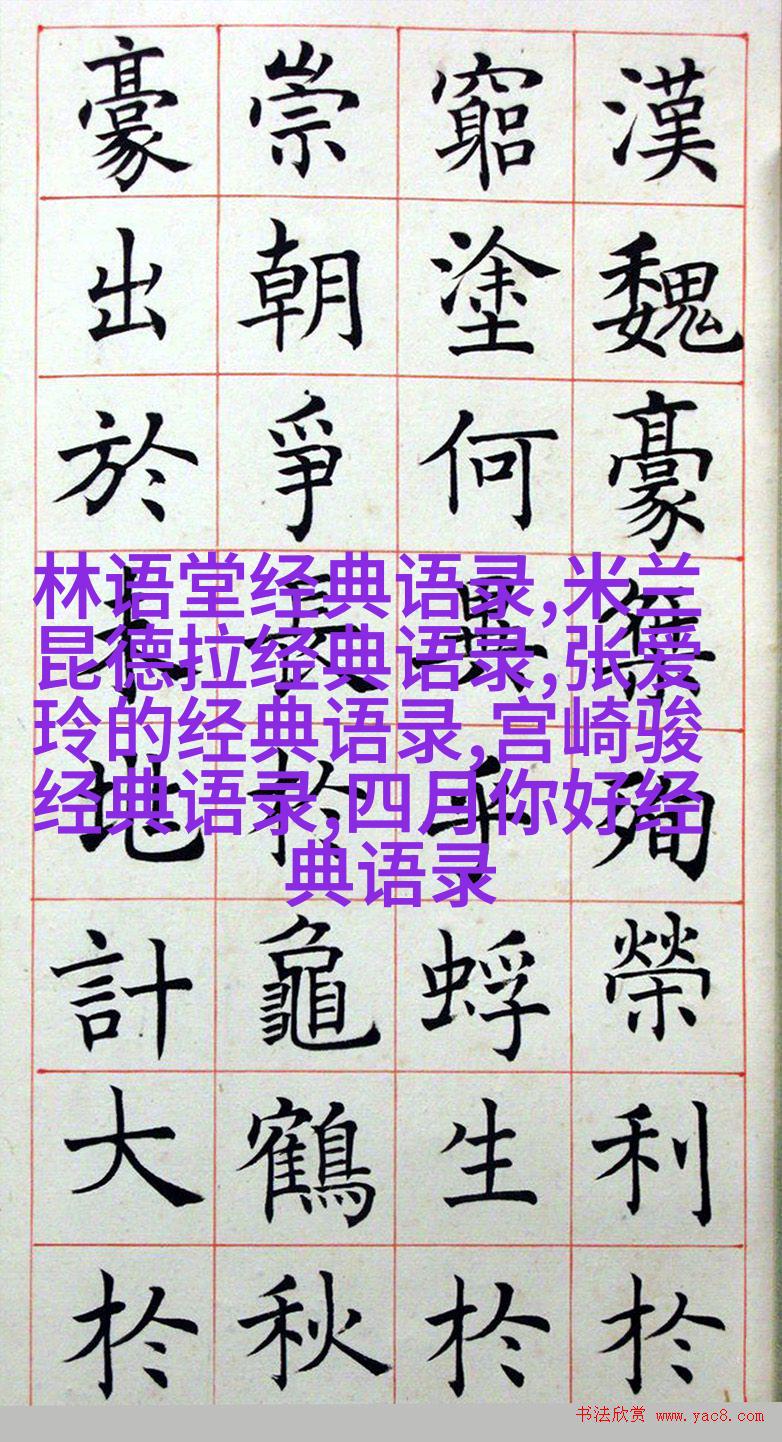 漢魏豪殉榮利扵
窮塗何異乎蜉生扵
崇朝爭長扵龜鶴秋
豪出於地計大扵
林语堂经典语录,米兰
昆德拉经典语录,张爱
玲的经典语录,宫崎骏
经典语录,四月你好经
典语录
书法欣赏 www.yac8.com